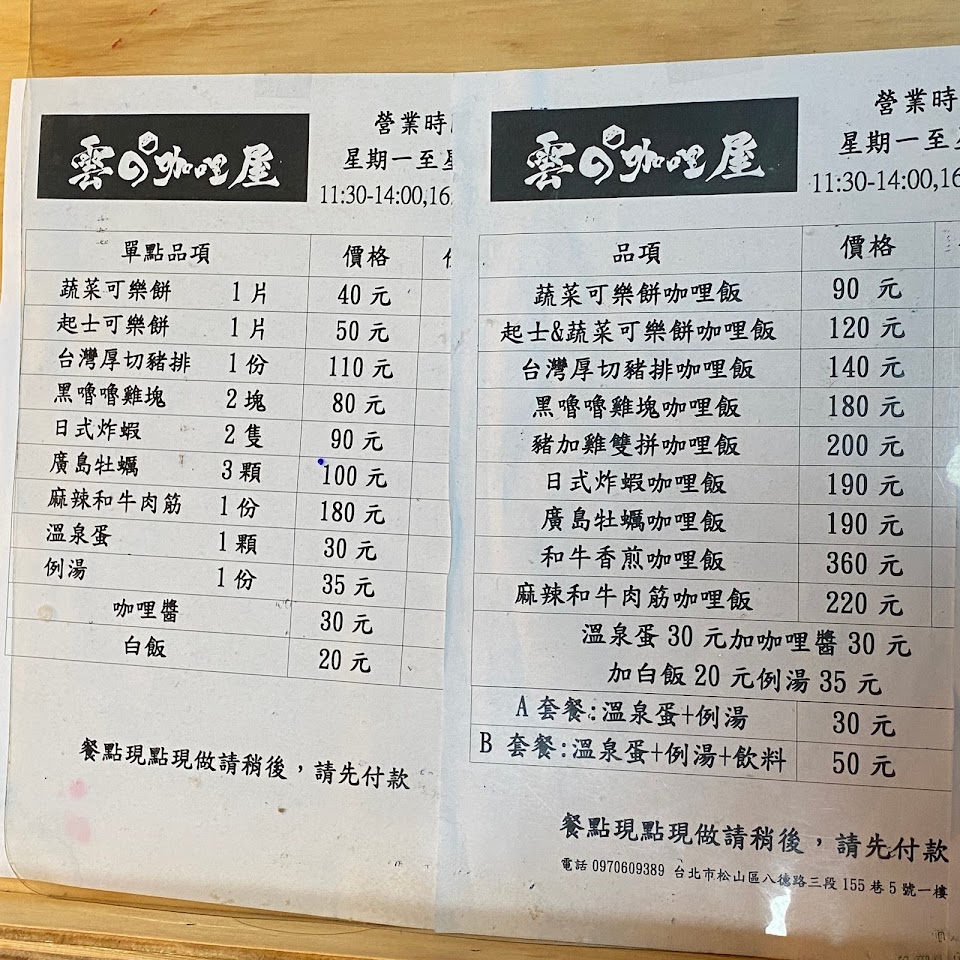 雲の咖哩屋
營業時
星期一至
11:30-14:00,16
單點品項 價格
蔬菜可樂餅 1片 40元
起士可樂餅 1片 50元
台灣厚切豬排 1份 110元
黑嚕嚕雞塊 2塊 80元
日式炸蝦 2隻 90元
廣島牡蠣 3顆 100元
麻辣和牛肉筋 1份 180元
溫泉蛋 1顆 30元
例湯 1份 35元
咖哩醬 30元
白飯 20元
餐點現點現做請稍後，請先付款
雲の咖哩屋
營業時
星期一至
11:30-14:00,16
品項 價格
蔬菜可樂餅咖哩飯 90 元
起士&蔬菜可樂餅咖哩飯 120 元
台灣厚切豬排咖哩飯 140 元
黑嚕嚕雞塊咖哩飯 180 元
豬加雞雙拼咖哩飯 200 元
日式炸蝦咖哩飯 190 元
廣島牡蠣咖哩飯 190 元
和牛香煎咖哩飯 360 元
麻辣和牛肉筋咖哩飯 220 元
溫泉蛋 30 元加咖哩醬 30 元
加白飯 20 元例湯 35 元
A 套餐:溫泉蛋+例湯 30 元
B 套餐:溫泉蛋+例湯+飲料 50 元
餐點現點現做請稍後，請先付款
電話 0970609389 台北市松山區八德路三段 155 巷 5 號一樓